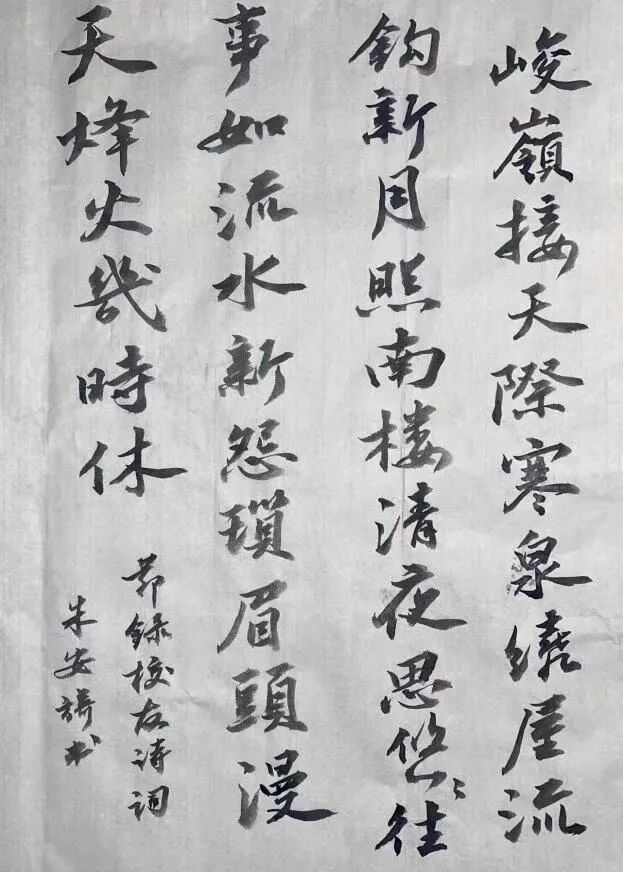 峻嶺接天際寒泉繞屋流
鈎新月照南楼清夜思悠〻往
事如流水新怨瑣眉頭漫
天烽火幾時休
節錄校友诗词
朱安